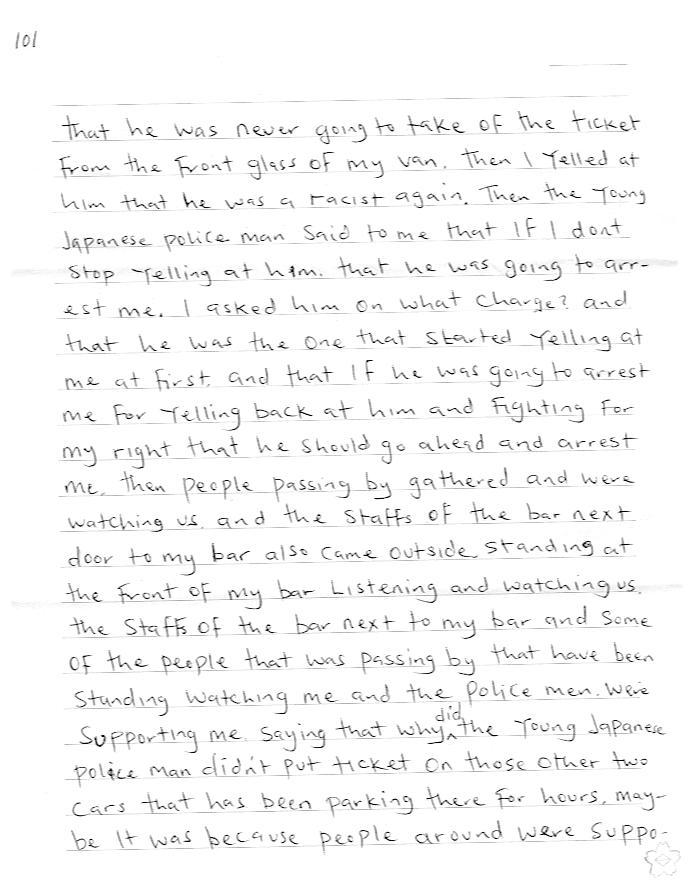 101
that he was never going to take of the ticket
from the front glass of my van. Then I Yelled at
him that he was a racist again. Then the Young
Japanese police man said to me that If I dont
stop Yelling at him. that he was going to arr-
est me. I asked him on what charge? and
that he was the one that started Yelling at
me at first. and that If he was going to arrest
me for Yelling back at him and Fighting for
my right that he should go ahead and arrest
me. then people passing by gathered and were
watching us. and the staffs of the bar next
door to my bar also came outside standing at
the front of my bar Listening and watching us.
the staffs of the bar next to my bar and some
of the people that was passing by that have been
standing watching me and the police men. were
supporting me. saying that why did the Young Japanese
police man didn't put ticket on those other two
cars that has been parking there for hours. may-
be It was because people around were suppo-